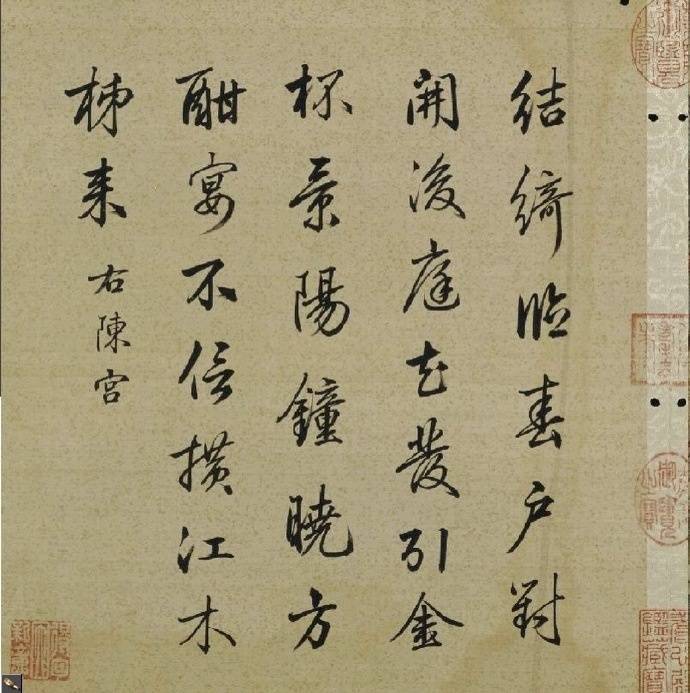 结绮临春户對
開後庭花發引金
杯景陽鐘曉方
酣宴不信横江木
柹来
右陳宮